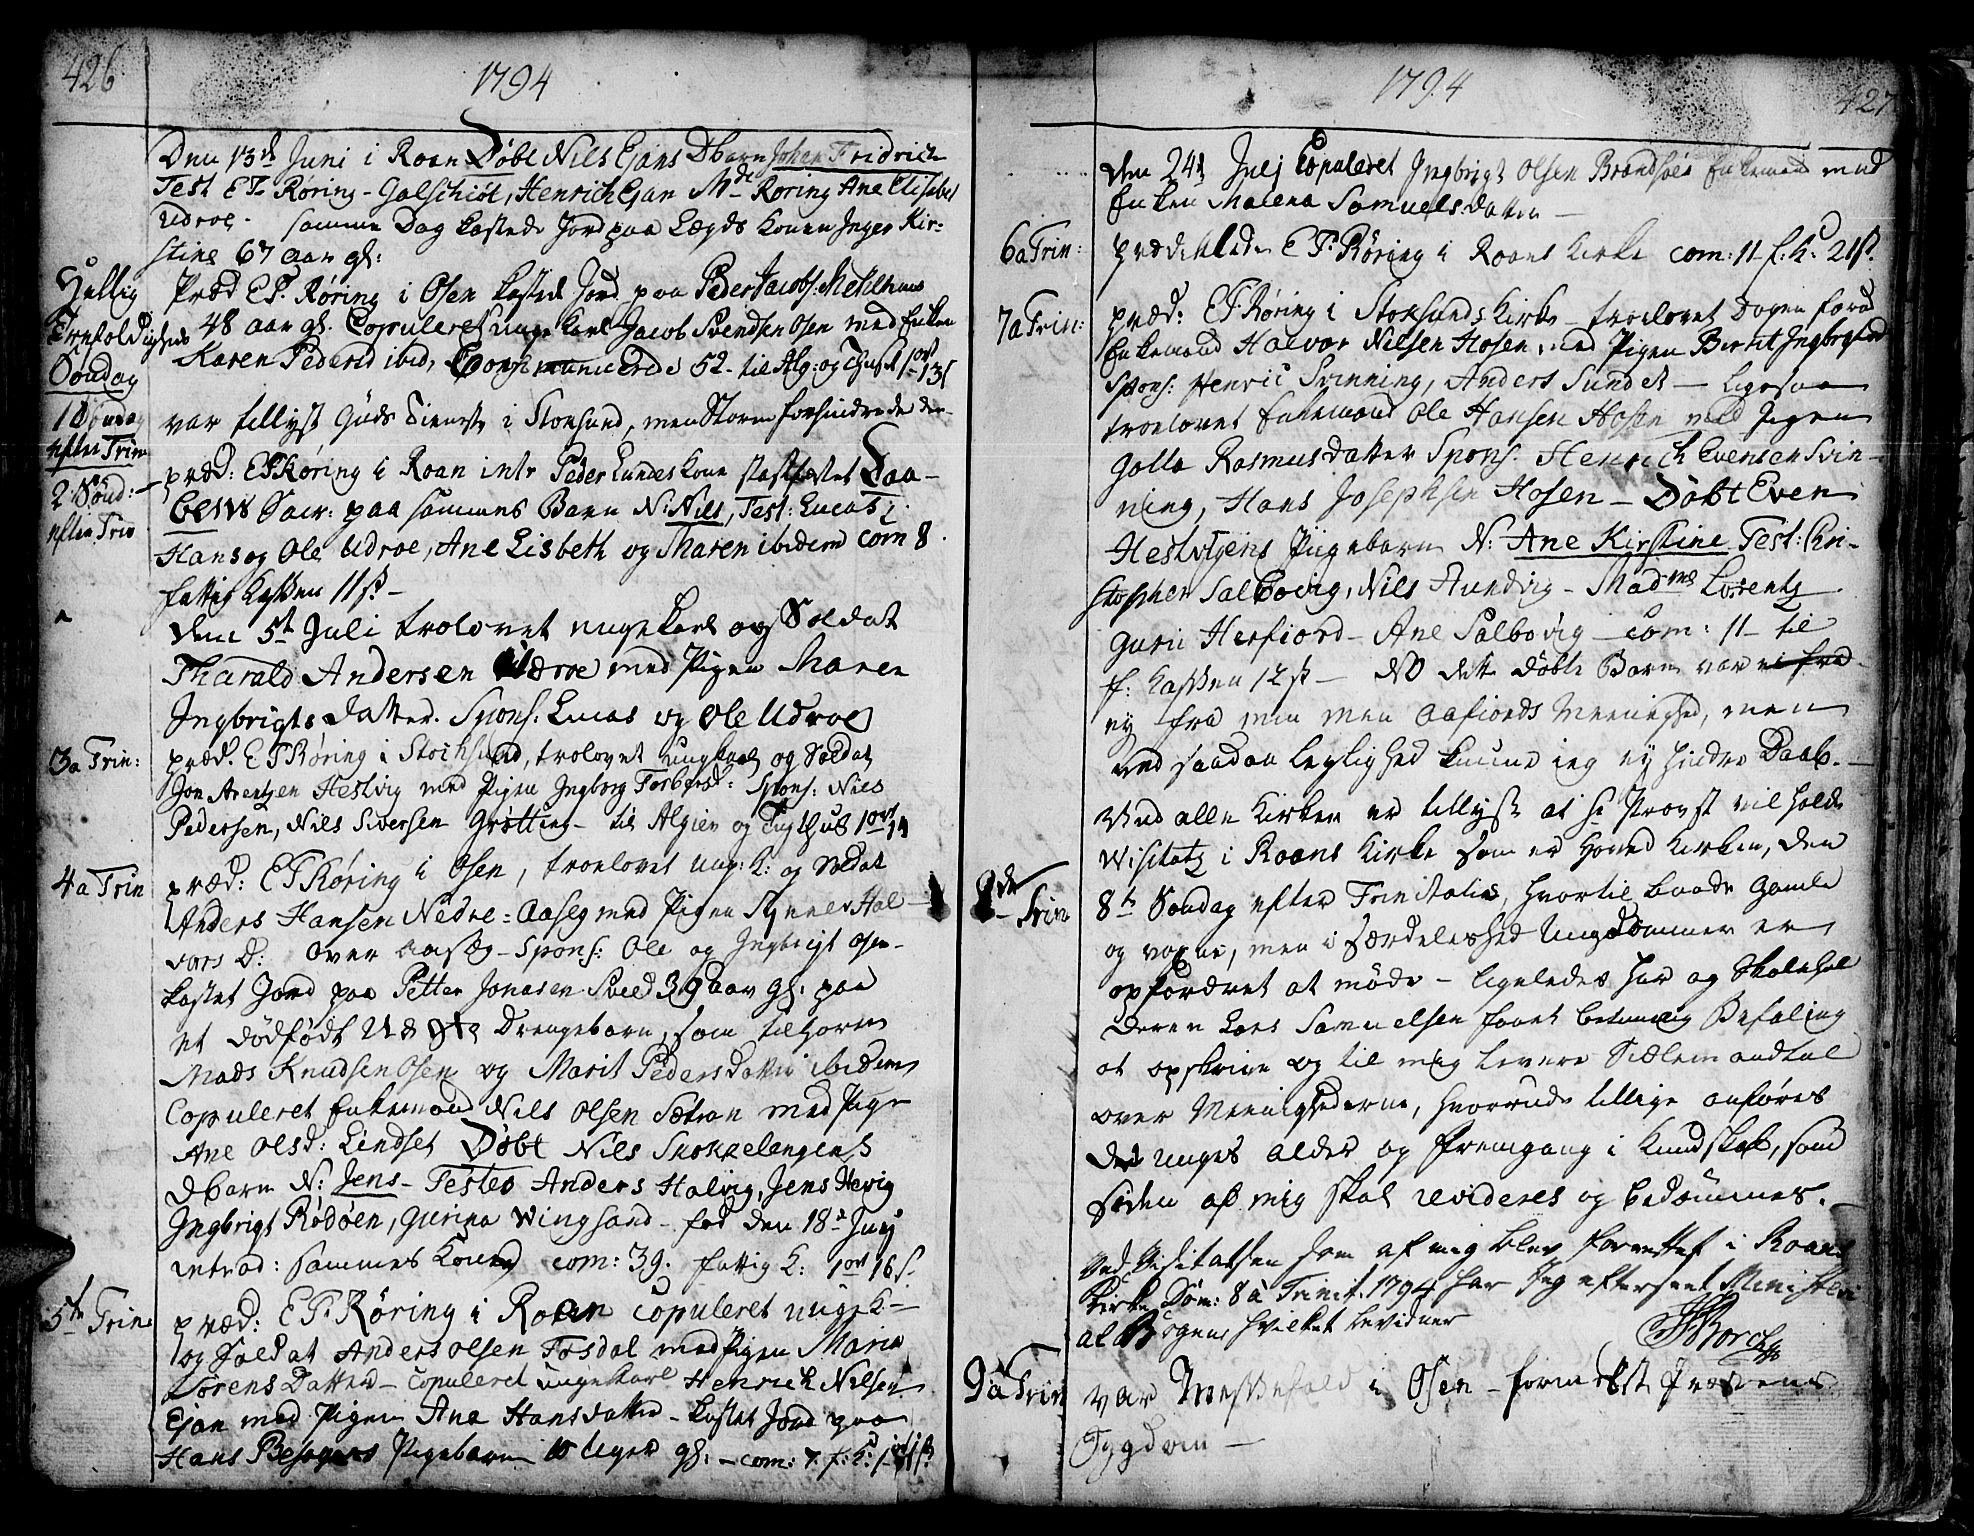 426
1794
Den 13d Juni i Roan Døbt Nils Ejans Dbarn Johan Fridrich
Test E T. Røring - Galschiöt, Henrich Ejan Mde Røring Ane Elisabet
Udroe - samme Dag kastede Jord paa Lægds Konen Inger Kir:
stine 67 aar gl:
Hellig
Trefoldigheds
Søndag
Præd E T. Røring i Osen kasted Jord paa Peder Jacobs: Mehlhuus
48 aar gl. Copuleret unge Karl Jacob Svendsen Osen med Enken
Karen Pedersd ibid, Communicerede 52 - til Alg: og Tugth 1 ort 13 s
1 Søndag
efter Trin
var tillyst Guds Tieneste i Stoksund, men Storm forhindrede den
2 Sønd:
efter Trin
præd: E T Røring i Roan intr Peder Lundes Kone stadfæstet Daa-
bens Sacr: paa sammes Barn N: Nils, Test: Lucas,
Hans og Ole Udroe, Ane Lisbeth og Maren ibidem com 8
fattig Kassen 11 s -
Den 5t Juli trolovet ungekarl og Soldat
Tharald Andersen Udroe med Pigen Maren
Ingbrigts Datter. Spons: Lucas og Ole Udroe
3a Trin:
præd. E T Røring i Stocksund, trolovet ungkarl og Soldat
Jon Arentzen Hestvig med Pigen Ingborg Torbersd: Spons: Nils
Pedersen, Nils Siversen Grøtting - til Algier og Tugthus 1 ort 14
4a Trin
præd: E T Røring i Osen, troelovet ung: K: og Soldat
Anders Hansen Nedre = Aaseg med Pigen Synnev Hal-
vors D: Over Aaseg - Spons: Ole og Ingbrigt Osen -
kastet Jord paa Petter Jonasen Sved 39 aar gl: paa
et dødfødt Drengebarn, som tilhører
Mads Knudsen Osen og Marit Pedersdatter ibidem
Copuleret Enkemand Nils Olsen Sætran med Pige
Ane Olsd: Lindset Døbt Nils Skokkelengens
Dbarn N: Jens - Testes Anders Halvig, Jens Hevig
Ingbrigt Rødøen, Gurina Wingsand - fød den 18d Junj
introd: sammes Kone com: 39. fattig K: 1 ort 16 s.
5te Trin:
præd: E T. Røring i Roan Copuleret unge K-
og Soldat Anders Olsen Fosdal med Pigen Maria
Sørens Datter - Copuleret ungekarl Henrich Nilsen
Ejan med Pigen Ane Hansdatter - kastet Jord paa
Hans Pigebarn 10 Uger gl: - com: 7. f: K:
1794
427
den 24d Julj Copuleret Ingbrigt Olsen Brandsøen Enkemand med
Enken Malena Samuels Datter -
6a Trin:
prædikede E T: Røring i Roans Kirke com: 11 - f: K: 21 s.
7a Trin:
præd: E T. Røring i Stoksunds Kirke - troelovet Dagen forud
Enkemand Halvor Nilsen Hosen, med Pigen Bernt Ingbrigtsd
Spons: Henric Svinning, Anders Sundet - ligesaa
troelovet Enkemand Ole Hansen Hosen med Pigen
Golla Rasmusdatter Spons: Henrich Evensen Svin-
ning, Hans Josephsen Hosen - Døbt Even
Hestvigens Pigebarn N: Ane Kirstine Test: Chri-
stopher Salbovig, Nils Sundvig - Madme Lorentz
Guru Herfiord - Ane Salbovig - com: 11 - til
f: Kassen 12 s - NB dette døbte Barn var ei fra
ey fra min men Aafiords Meenighed, men
ved saadan leylighed kunne ieg ey hindre Daab. -
Ved alle Kirker er tillyst at Hr Provst vil holde
Visitatz i Roans Kirke som er Hoved Kirken, den
8de
Trin
8t Søndag efter Trinitatis, hvortil baade Gamle
og voxne, men i Særdeleshed Ungdommen er
opfordret at møde - ligeledes har og Skolehol
deren Lars Samuelsen faaet betimelig Befaling
at opskrive og til mig levere Sielemandtal
over Meenighederne, hvorunder tillige anføres
Det unges alder og Fremgang i Kundskab, som
siden af mig skal revideres og bedømmes. -
Ved Visitatsen som af mig blev forrettet i Roans
Kirke Dom: 8 à Trinit: 1794 har Jeg efterseet Ministeri
al Bogen hvilket bevidner
Borch
9a Trin
var Messefald i Osen - formedelst Præstens
Sygdom -